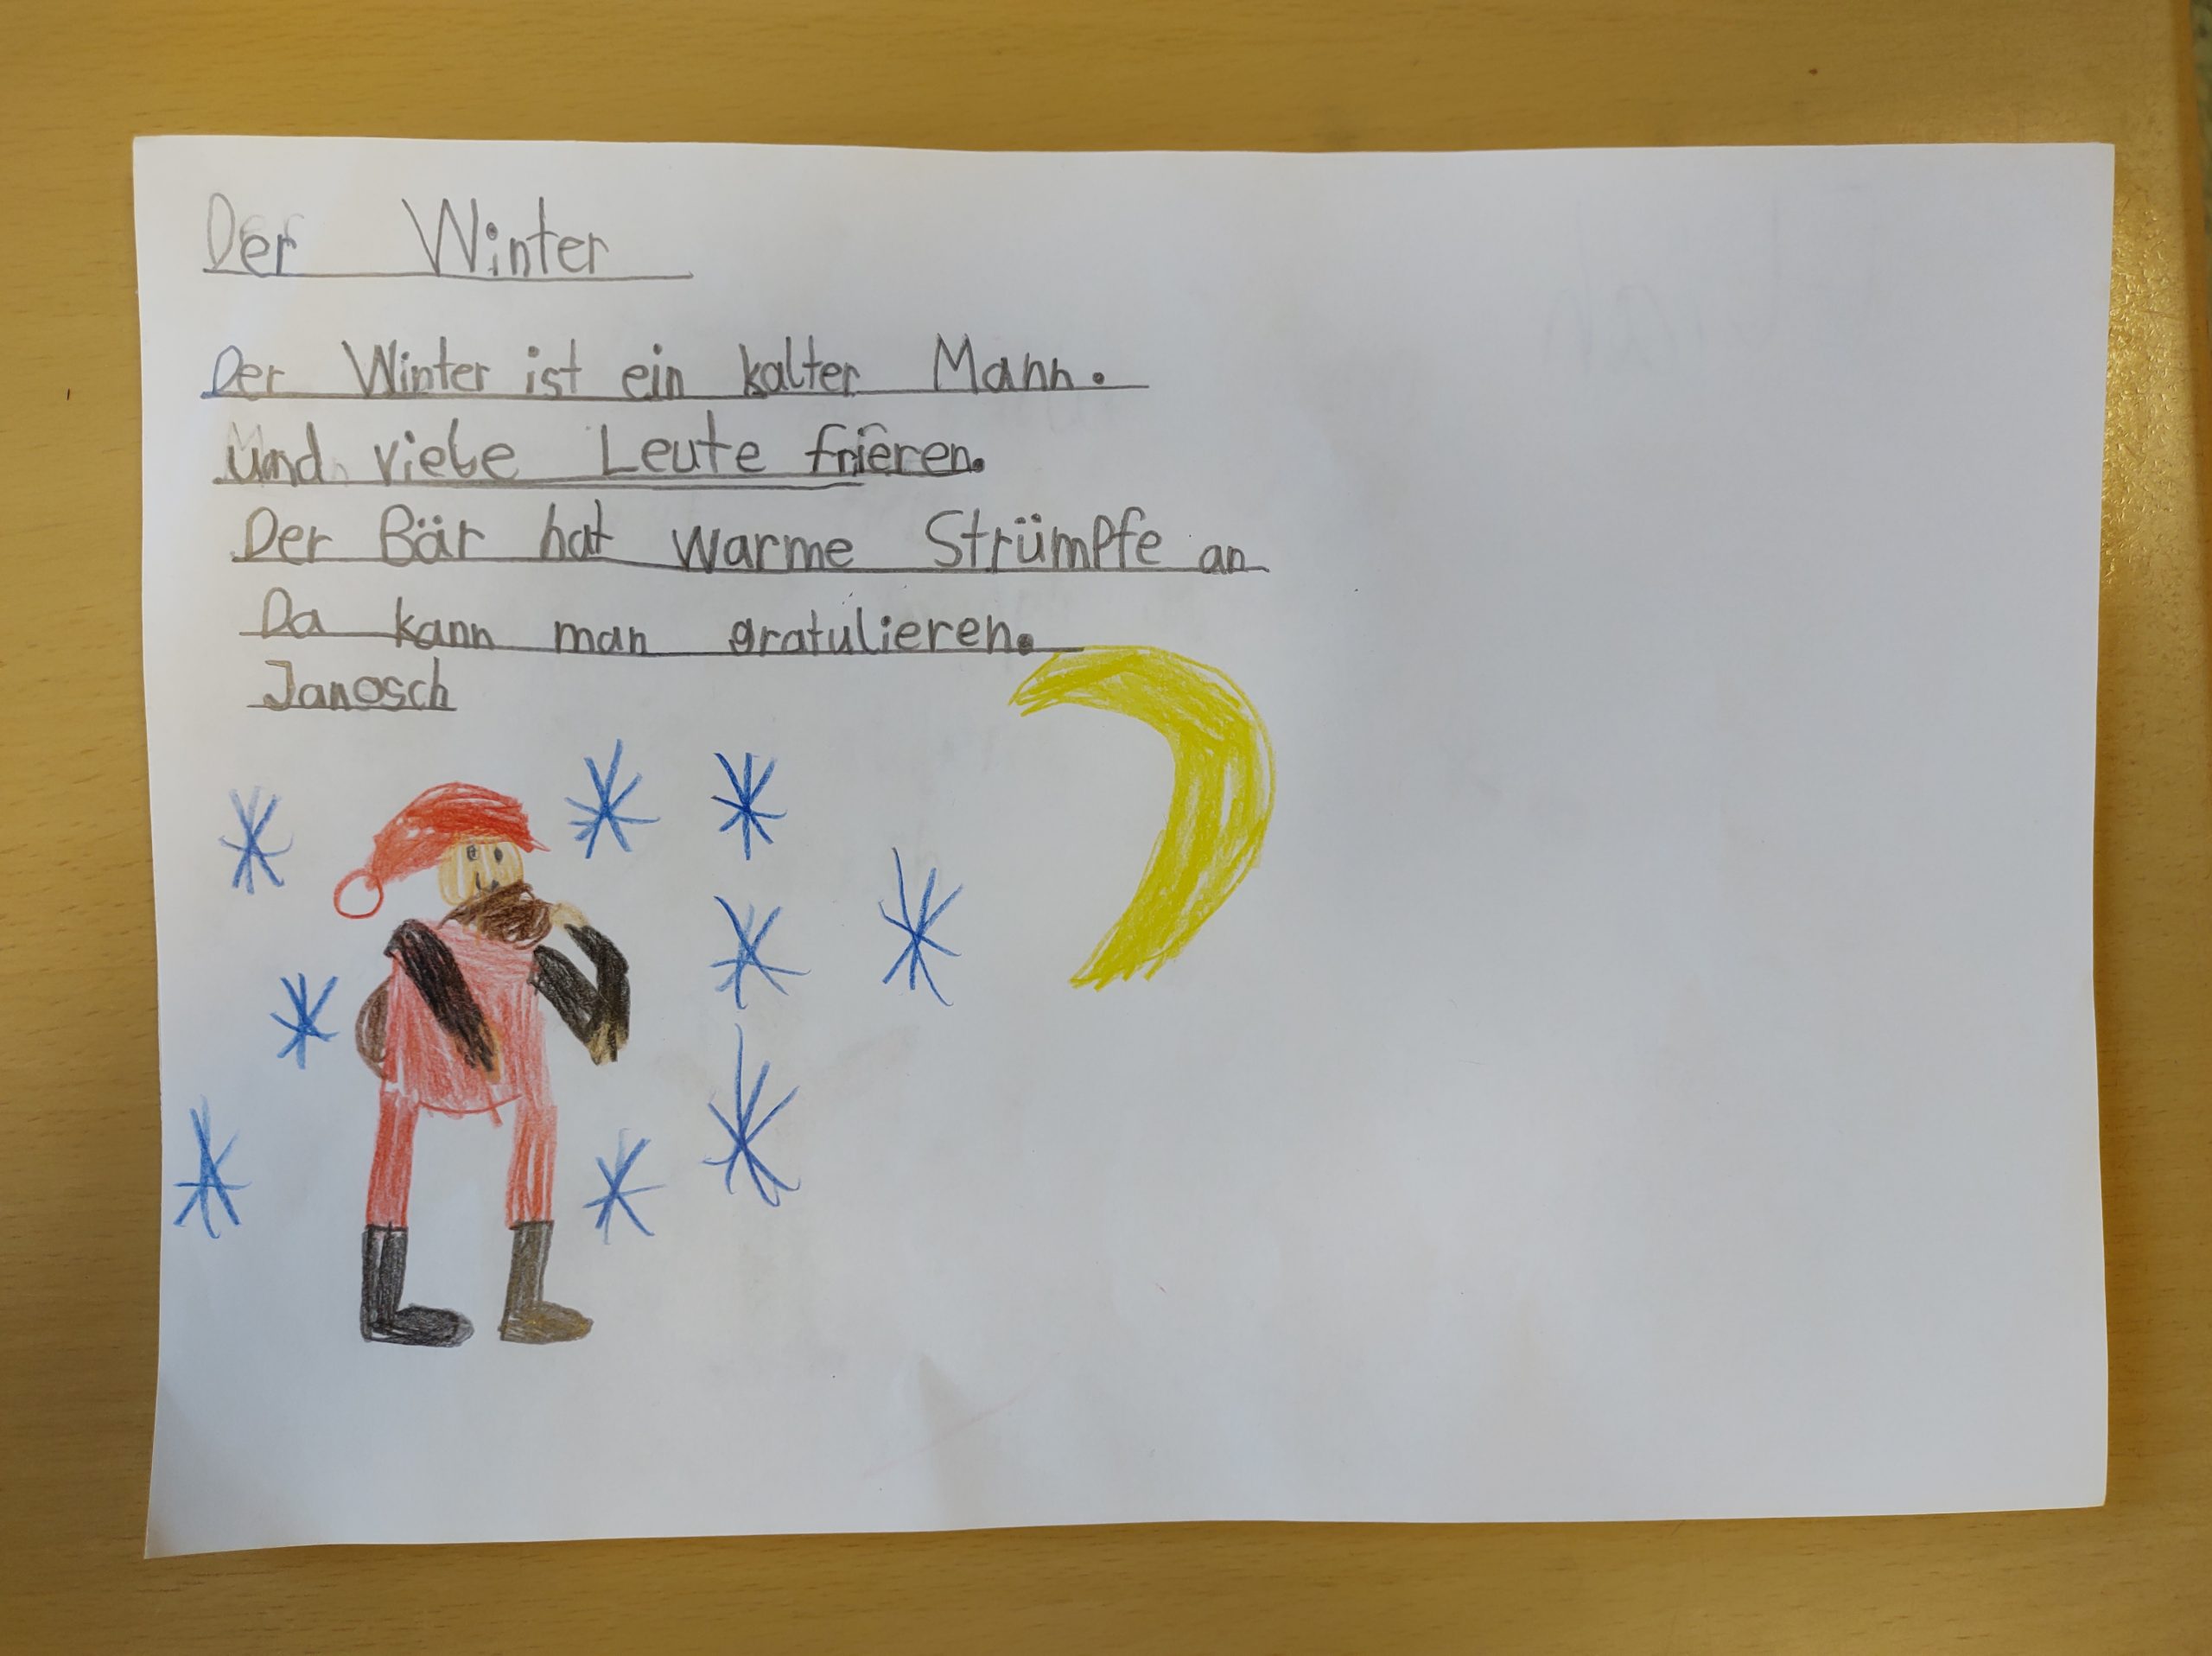 Der Winter
Der Winter ist ein kalter Mann.
Und viele Leute frieren.
Der Bär hat warme Strümpfe an
Da kann man gratulieren.
Janosch